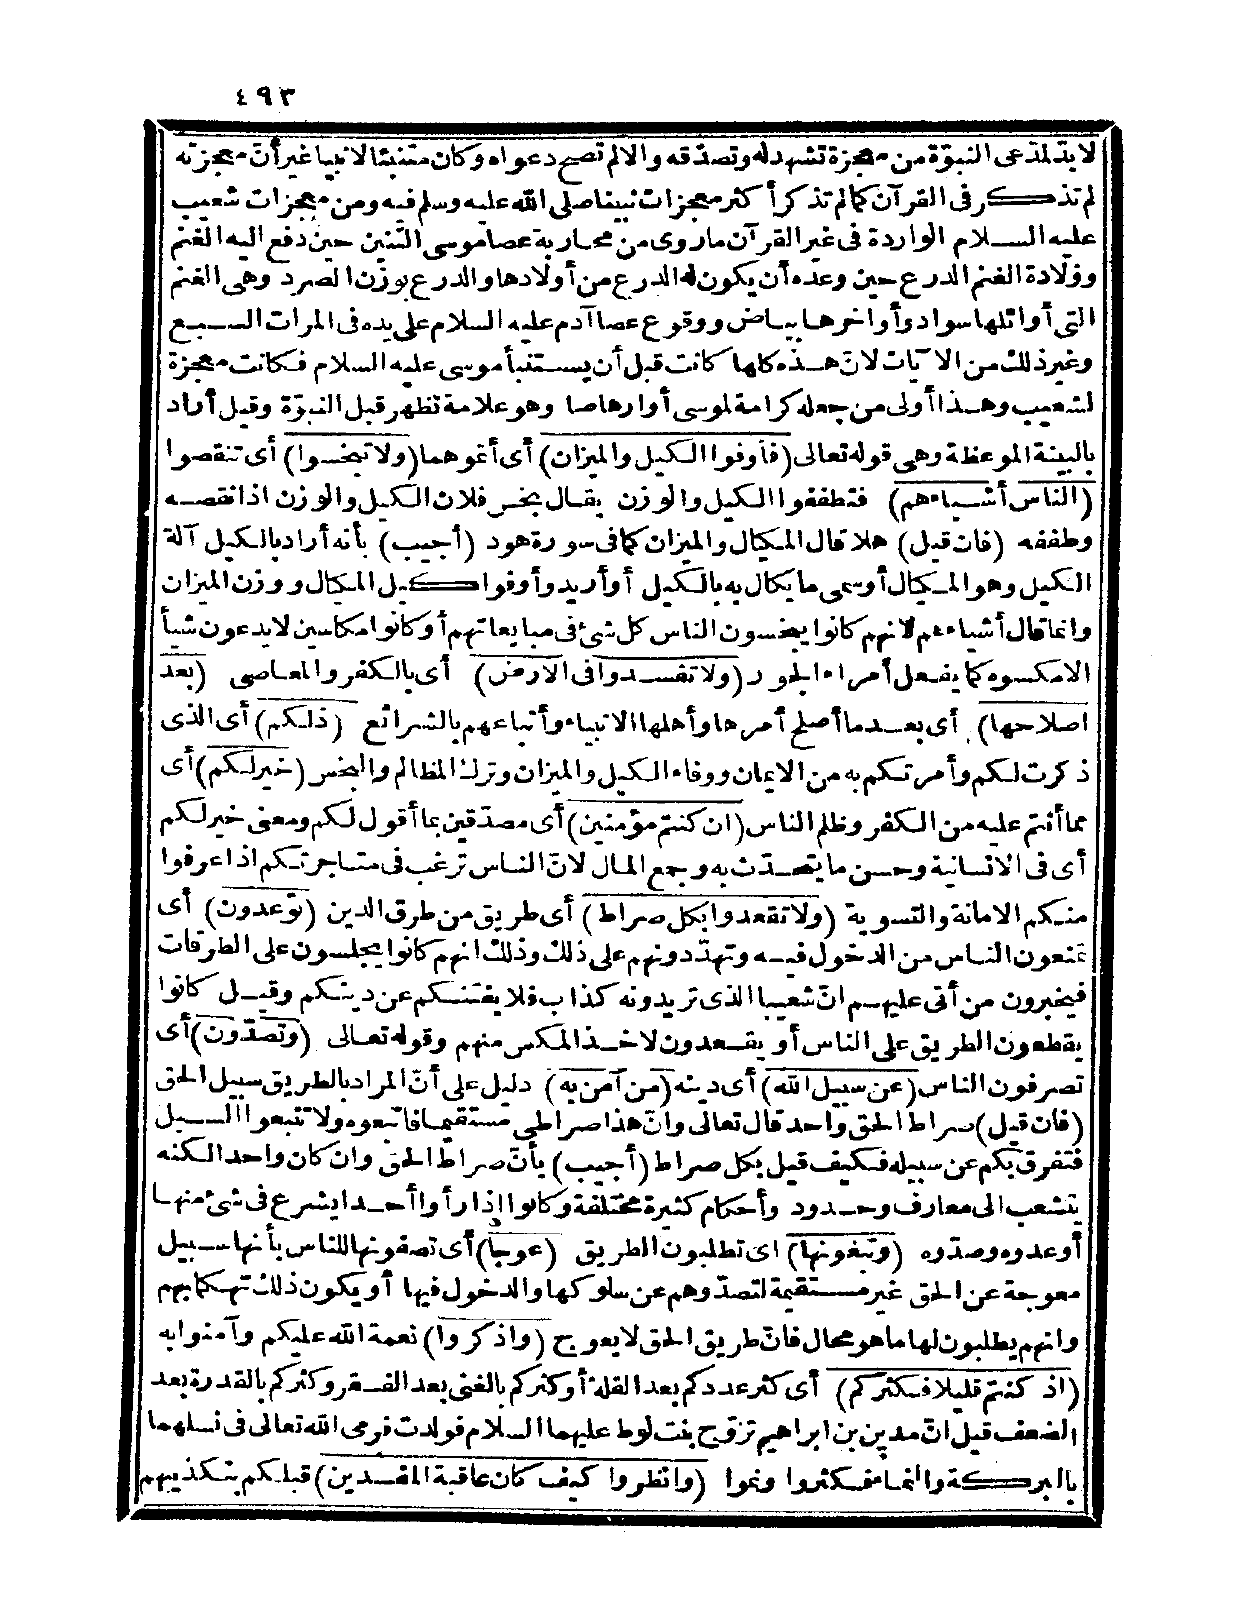 ٤٩٣
لا بد لمدعى النبوّة من معجزة تشهد له وتصدّقه والا لم تصح دعواه وكان متنبئا لا نبيا غير أنّ معجزته
لم تذكر فى القرآن كما لم تذكر أكثر معجزات نبينا صلى الله عليه وسلم فيه ومن معجزات شعيب
عليه السلام الواردة فى غير القرآن ماروى من محاربة عصا موسى التنين حين دفع اليه الغنم
وولادة الغنم الدرع حين وعده أن يكون له الدرع من أولادها والدرع بوزن الصرد وهى الغنم
التى أوائلها سواد وأواخرها بياض ووقوع عصا آدم عليه السلام على يده فى المرات السبع
وغير ذلك من الآيات لانّ هذه كلها كانت قبل أن يستنبأ موسى عليه السلام فكانت معجزة
لشعيب وهذا أولى من جعله كرامة لموسى أو ارهاصا وهو علامة تظهر قبل النبوّة وقيل أراد
بالبينة الموعظة وهى قوله تعالى (فأوفوا الكيل والميزان) أى أتموهما (ولا تبخسوا) أى تنقصوا
(الناس أشياءهم) فتطففوا الكيل والوزن يقال بخس فلان الكيل والوزن اذا نقصه
وطففه (فان قيل) هلا قال المكيال والميزان كما فى سورة هود (أجيب) بأنه أراد بالكيل آلة
الكيل وهو المكيال أو سمى ما يكال به بالكيل أو أريد وأوفوا كيل المكيال ووزن الميزان
وانما قال أشياءهم لانهم كانوا يبخسون الناس كل شئ فى مبايعاتهم أو كانوا مكاسين لا يدعون شيأ
الامكسوه كما يفعل أمراء الجور (ولا تفسدوا فى الارض) أى بالكفر والمعاصى (بعد
اصلاحها) أى بعد ما أصلح أمرها وأهلها الانبياء وأتباعهم بالشرائع (ذلكم) أى الذى
ذكرت لكم وأمرتكم به من الايمان ووفاء الكيل والميزان وترك المظالم والبخس (خير لكم) أى
مما أنتم عليه من الكفر وظلم الناس (ان كنتم مؤمنين) أى مصدّقين بما أقول لكم ومعنى خير لكم
أى فى الانسانية وحسن ما يتحدّث به وجمع المال لانّ الناس ترغب فى متاجرتكم اذا عرفوا
منكم الامانة والتسوية (ولا تقعدوا بكل صراط) أى طريق من طرق الدين (توعدون) أى
تمنعون الناس من الدخول فيه وتهدّدونهم على ذلك وذلك انهم كانوا يجلسون على الطرقات
فيخبرون من أتى عليهم انّ شعيبا الذى تريدونه كذاب فلا يفتنكم عن دينكم وقيل كانوا
يقطعون الطريق على الناس أو يقعدون لاخذ المكس منهم وقوله تعالى (وتصدّون) أى
تصرفون الناس (عن سبيل الله) أى دينه (من آمن به) دليل على أنّ المراد بالطريق سبيل الحق
(فان قيل) صراط الحق واحد قال تعالى وانّ هذا صراطى مستقيما فاتبعوه ولا تتبعوا السبل
فتفرق بكم عن سبيله فكيف قيل بكل صراط (أجيب) بأنّ صراط الحق وان كان واحد الكنه
يتشعب الى معارف وحدود وأحكام كثيرة مختلفة وكانوا اذا رأوا أحدا يشرع فى شئ منها
أوعدوه وصدّوه (وتبغونها) اى تطلبون الطريق (عوجا) أى تصفونها للناس بأنها سبيل
معوجة عن الحق غير مستقيمة لتصدّوهم عن سلوكها والدخول فيها أو يكون ذلك تهكما بهم
وانهم يطلبون لها ما هو محال فانّ طريق الحق لا يعوج (واذكروا) نعمة الله عليكم وآمنوا به
(اذ كنتم قليلا فكثركم) أى كثر عددكم بعد القلة أو كثركم بالغنى بعد الفقر وكثركم بالقدرة بعد
الضعف قيل انّ مدين بن ابراهيم تزوّج بنت لوط عليهما السلام فولدت فرمى الله تعالى فى نسلهما
بالبركة والنماء فكثروا ونموا (وانظروا كيف كان عاقبة المفسدين) قبلكم بتكذيبهم